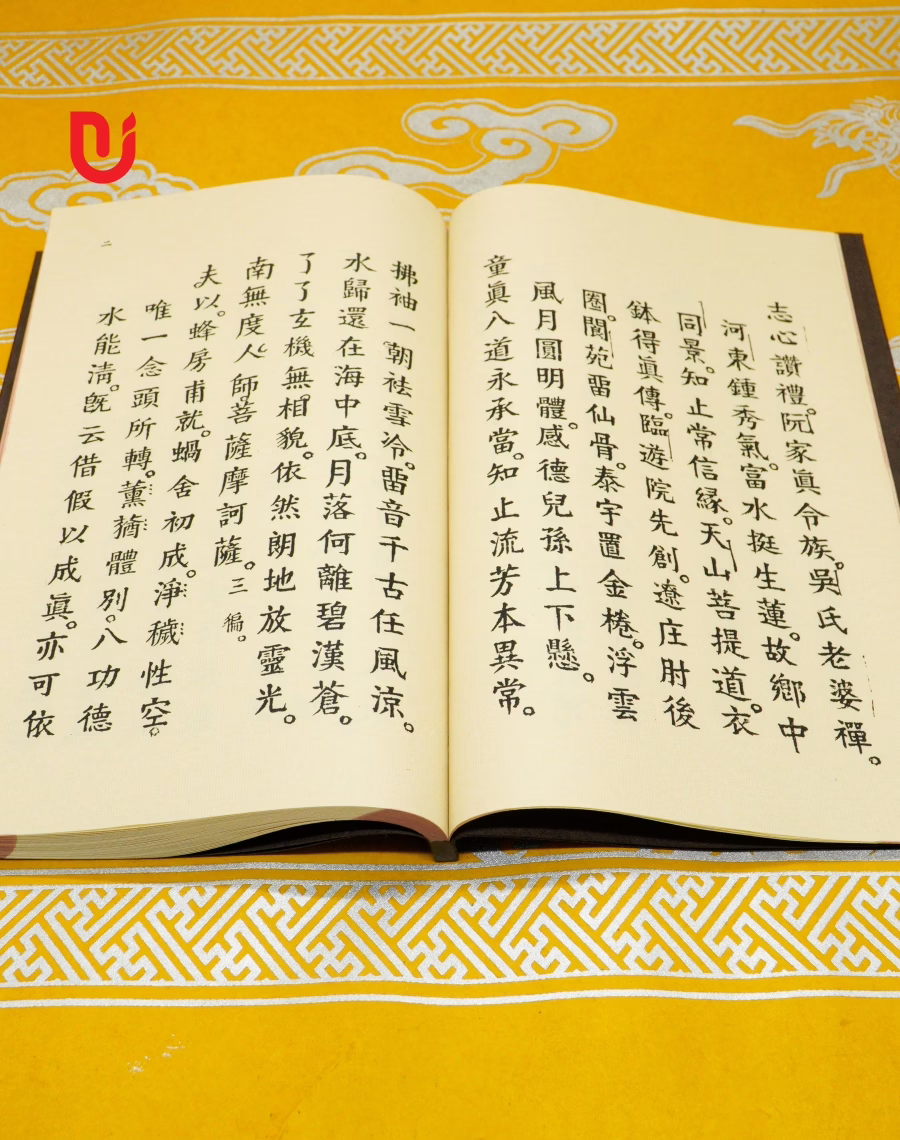 志心讚禮。阮家眞令族。吳氏老婆禪。
河東鍾秀氣。富水挺生蓮。故鄉中
同景。知止常信緣。天山菩提道。衣
鉢得眞傳。臨遊院先創。遼庄肘後
圈。閬苑畱仙骨。泰宇置金棬。浮雲
風月圓明體。感德兒孫上下懸。
童眞八道永承當。知止流芳本異常。
拂袖一朝祛雪冷。畱音千古任風涼。
水歸還在海中底。月落何離碧漢蒼。
了了玄機無相貌。依然朗地放靈光。
南無度人師。菩薩摩訶薩。三徧。
夫以。蜂房甫就。蝸舍初成。淨穢性空。
唯一念頭所轉。薰蕕體別。八功德
水能淸。旣云借假以成眞。亦可依
二